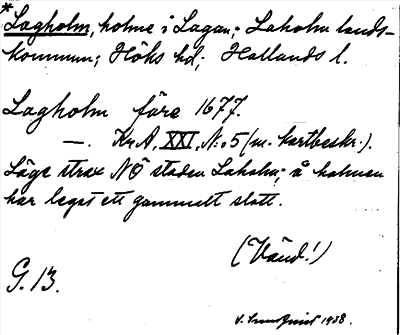 *Lagholm, holme i Lagan; Laholm lands-
kommun; Höks hd; Hallands l.
Lagholm före 1677.
—. Kr.A. XXI. N:o 5 (m. kartbeskr.).
Läge strax NÖ staden Laholm; å holmen
har legat ett gammalt slott.
(Vänd!)
G. 13.
1938.